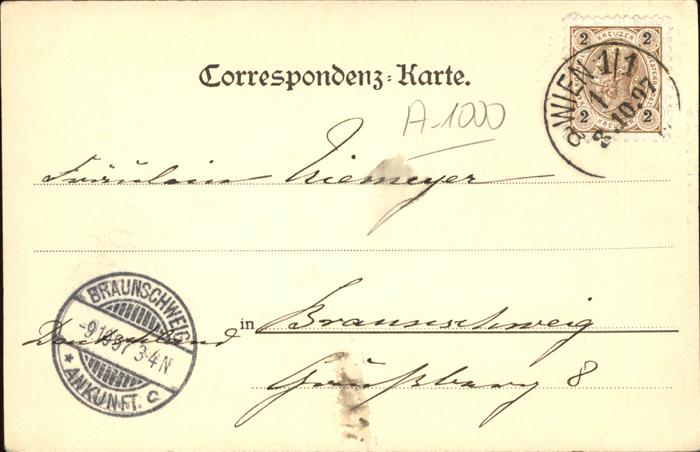 2 KREUZER 2
2 KREUZER 2
WIEN 1/1
1
8.10.97
8
Correspondenz-Karte.
A-1000
Fräulein Niemeyer
in Braunschweig
Deutschland
8
BRAUNSCHWEIG
-9.10.97 3-4N
* ANKUNFT. C